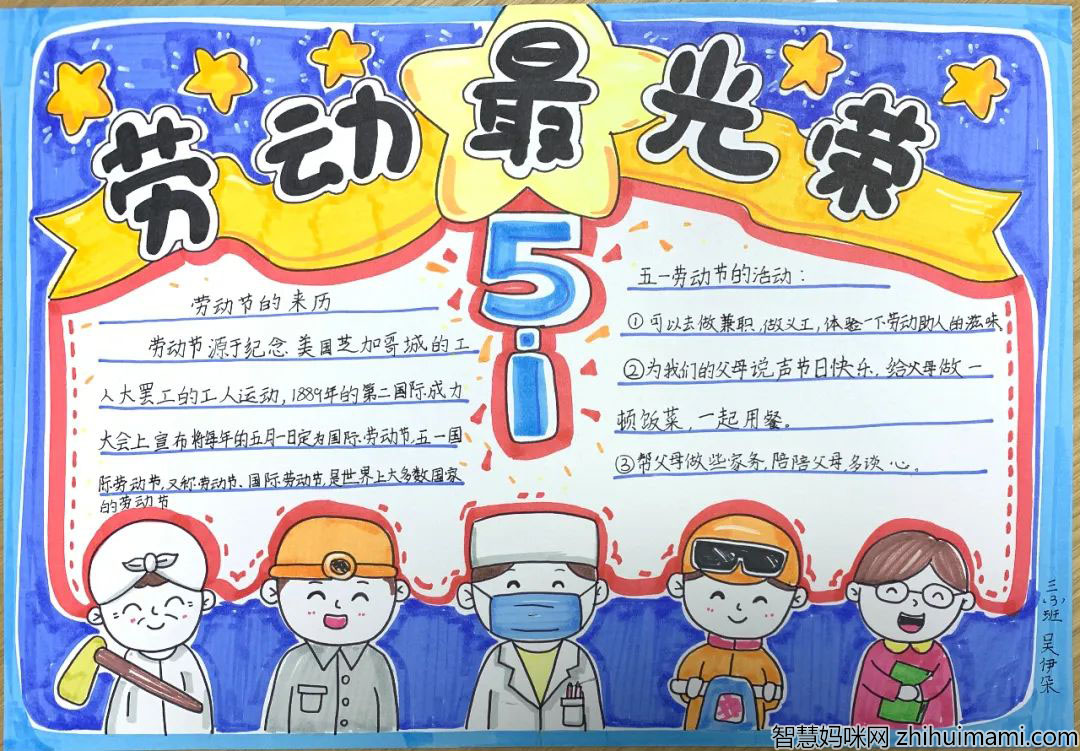 劳动最光荣
5.1
劳动节的来历
劳动节源于纪念美国芝加哥城的工
人大罢工的工人运动,1889年的第二国际成力
大会上宣布将每年的五月一日定为国际劳动节,五一国
际劳动节,又称劳动节、国际劳动节,是世界上大多数国家
的劳动节
五一劳动节的活动:
①可以去做兼职,做义工,体验一下劳动助人的滋味
②为我们的父母说声节日快乐,给父母做一
顿饭菜,一起用餐。
③帮父母做些家务,陪陪父母多谈心。
三(3)班 吴伊朵
智慧妈咪网 zhihuimami.com